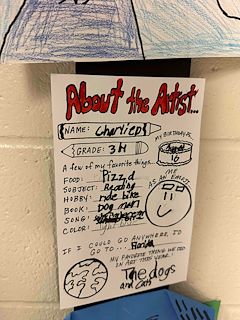 About the Artist...
NAME: Charlie D
MY BIRTHDAY IS...
August
16
GRADE: 3H
A few of my favorite things...
ME
AS AN EMOJI
FOOD: Pizza
SUBJECT: Reading
HOBBY: ride bike
BOOK: Dog man
SONG:
COLOR: light blue
IF I COULD GO ANYWHERE, I'D
GO TO... Florida
MY FAVORITE THING WE DID
IN ART THIS YEAR...
The dogs
and cats